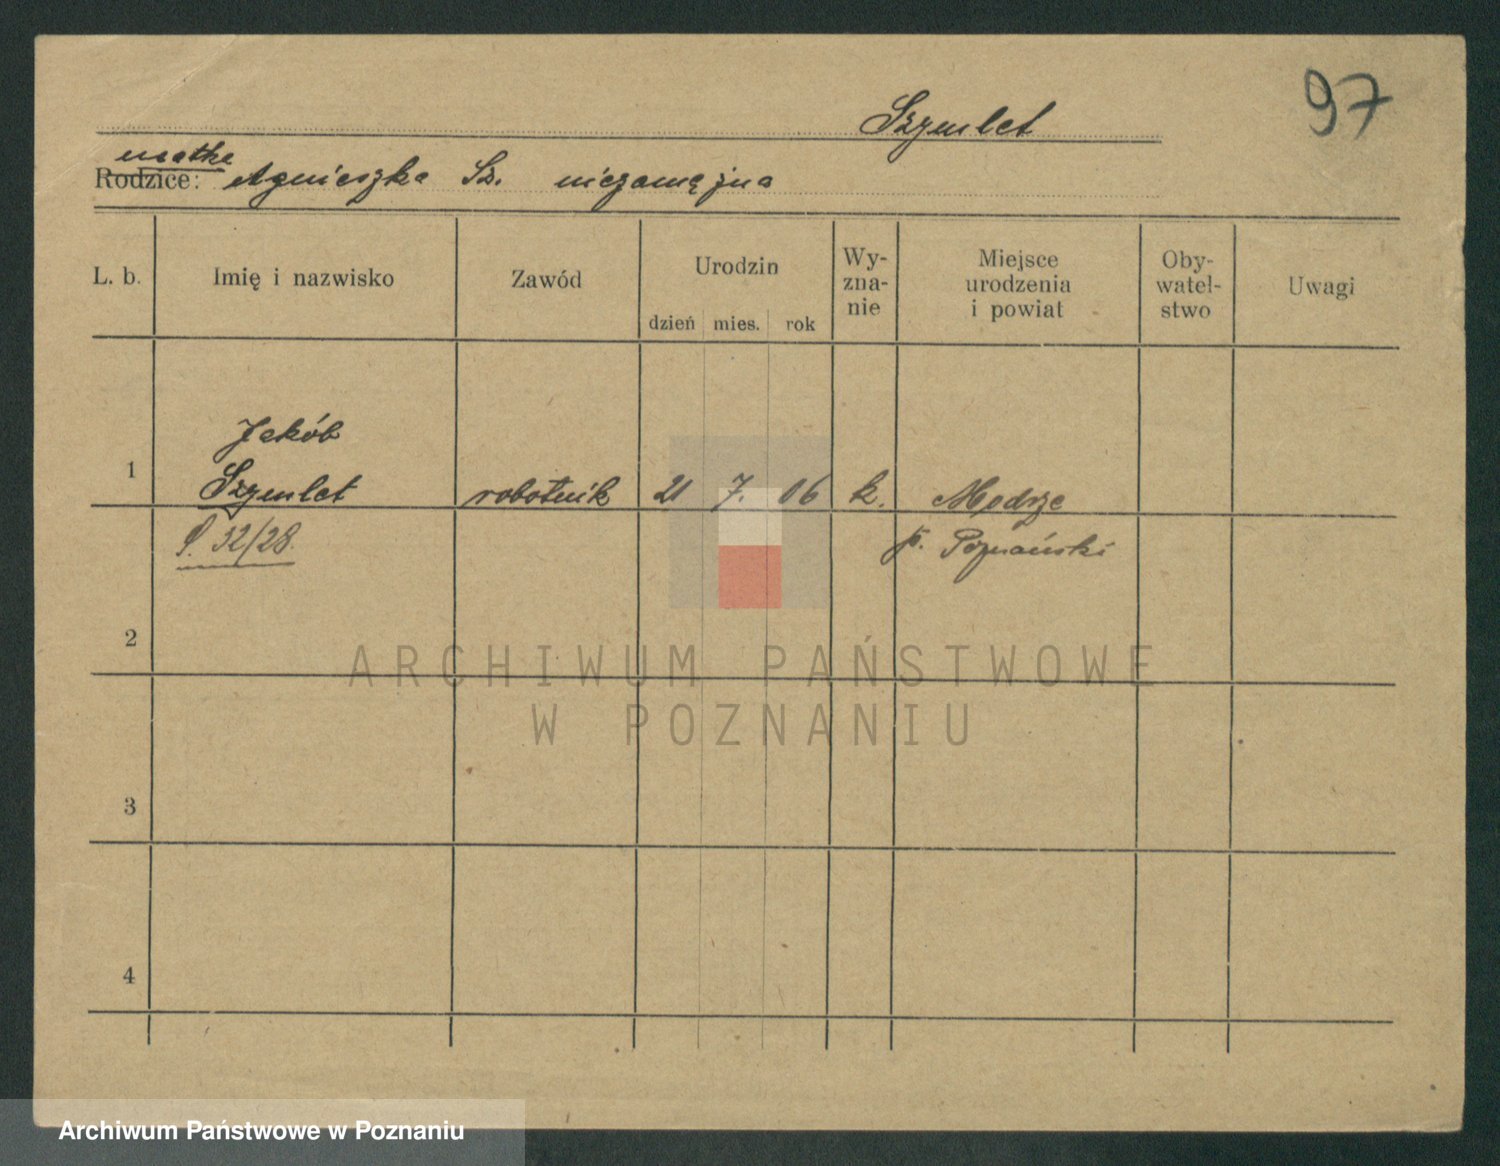 97
Szymlet
matka
Rodzice: Agnieszka Sz. niezamężna
L. b. Imię i nazwisko Zawód Urodzin Wy-zna-nie Miejsce urodzenia i powiat Oby-watel-stwo Uwagi
dzień mies. rok
Jakób
1 Szymlet robotnik 21 7. 06 k. Modrze
32/28. p. Poznański
2
ARCHIWUM PAŃSTWOWE
W POZNANIU
3
4
Archiwum Państwowe w Poznaniu